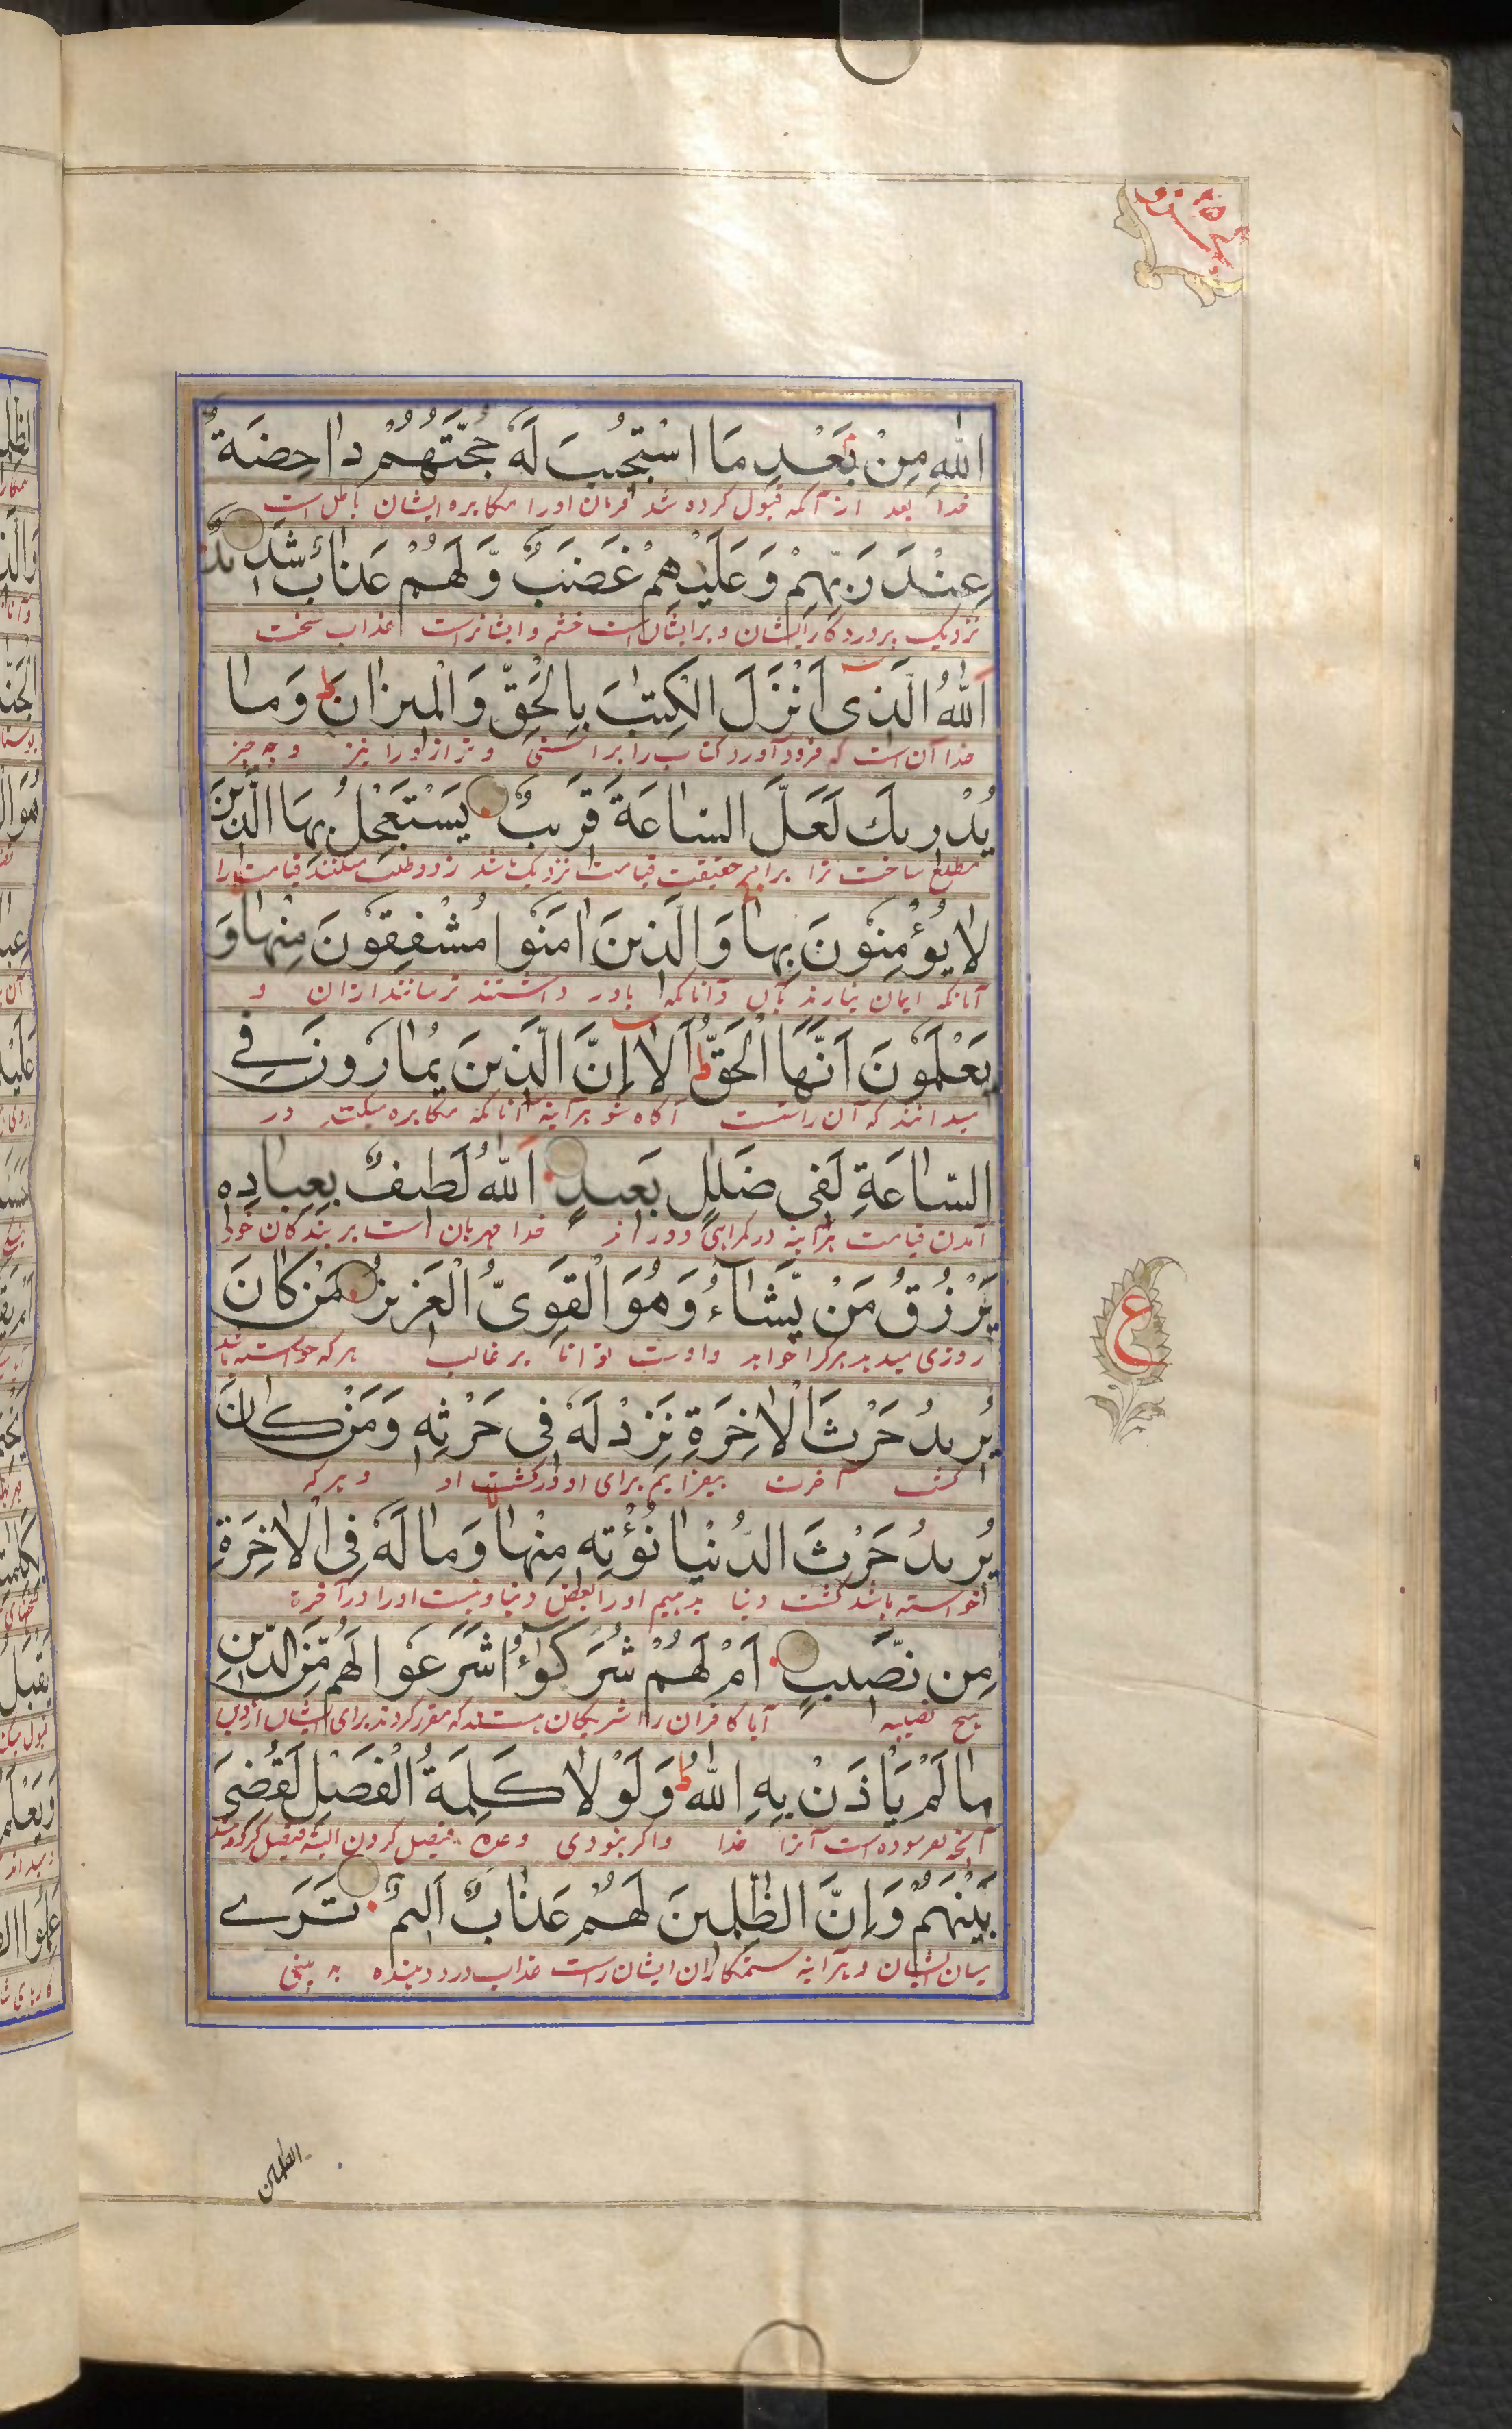 اللّٰهِ مِنْۢ بَعْدِ مَا اسْتُجِيْبَ لَهٗ حُجَّتُهُمْ دَاحِضَةٌ
خدا بعد از آنکه قبول کرده شد فرمان اورا مکابره ایشان باطل است
عِنْدَ رَبِّهِمْ وَعَلَيْهِمْ غَضَبٌ وَّلَهُمْ عَذَابٌ شَدِيْدٌ
نزدیک پروردگار ایشان و بر ایشان است خشم و ایشانراست عذاب سخت
اَللّٰهُ الَّذِىْٓ اَنْزَلَ الْكِتٰبَ بِالْحَقِّ وَالْمِيْزَانَ ط وَمَا
خدا آن است که فرود آورد کتاب را براستی و ترازو را نیز و چه چیز
يُدْرِيْكَ لَعَلَّ السَّاعَةَ قَرِيْبٌ يَسْتَعْجِلُ بِهَا الَّذِيْنَ
مطلع ساخت ترا برای حقیقت قیامت نزدیک باشد زود طلب میکنند قیامت را
لَا يُؤْمِنُوْنَ بِهَا ج وَالَّذِيْنَ اٰمَنُوْا مُشْفِقُوْنَ مِنْهَا وَ
آنانکه ایمان نیارند بآن و آنانکه باور داشتند ترسانند ازان و
يَعْلَمُوْنَ اَنَّهَا الْحَقُّ ط اَلَآ اِنَّ الَّذِيْنَ يُمَارُوْنَ فِى
میدانند که آن راست است آگاه شو هرآینه آنانکه مکابره میکنند در
السَّاعَةِ لَفِىْ ضَلٰلٍ بَعِيْدٍ اَللّٰهُ لَطِيْفٌ بِعِبَادِهٖ
آمدن قیامت هرآینه در گمراهی دور اند خدا مهربان است بر بندگان خود
يَرْزُقُ مَنْ يَّشَآءُ وَهُوَ الْقَوِىُّ الْعَزِيْزُ مَنْ كَانَ
روزی میدهد هرکرا خواهد و اوست توانا بر غالب هر که خواسته باشد
يُرِيْدُ حَرْثَ الْاٰخِرَةِ نَزِدْ لَهٗ فِىْ حَرْثِهٖ وَمَنْ كَانَ
کشت آخرت بیفزاییم برای او در کشت او و هر که
يُرِيْدُ حَرْثَ الدُّنْيَا نُؤْتِهٖ مِنْهَا وَمَا لَهٗ فِى الْاٰخِرَةِ
خواسته باشد کشت دنیا بدهیم اورا بعض دنیا و نیست اورا در آخرة
مِنْ نَّصِيْبٍ اَمْ لَهُمْ شُرَكٰٓؤُا شَرَعُوْا لَهُمْ مِّنَ الدِّيْنِ
هیچ نصیبه آیا کافران را شریکان هستند که مقرر کردند برای ایشان از دین
مَا لَمْ يَاْذَنْۢ بِهِ اللّٰهُ ط وَلَوْلَا كَلِمَةُ الْفَصْلِ لَقُضِىَ
آنچه نفرموده است آنرا خدا و اگر نبودی وعده فیصل کردن البته فیصل کرده شد
بَيْنَهُمْ وَاِنَّ الظّٰلِمِيْنَ لَهُمْ عَذَابٌ اَلِيْمٌ تَرَى
میان ایشان و هرآینه ستمگاران ایشان راست عذاب درد دهنده به بینی
ع
الظلمین